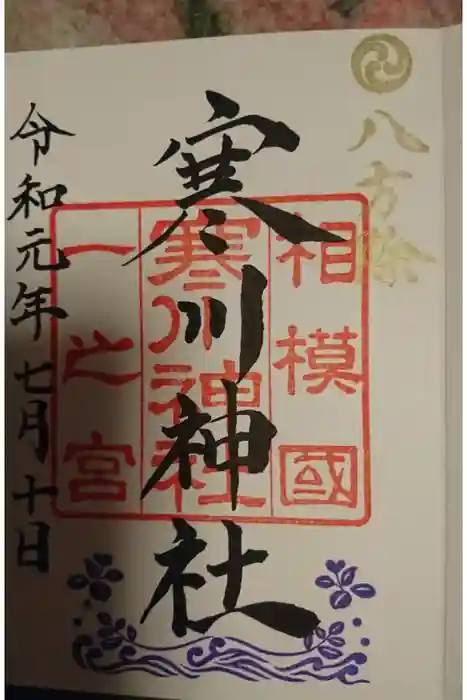 八方除
寒川神社
相模國
寒川神社
一之宮
令和元年七月十日